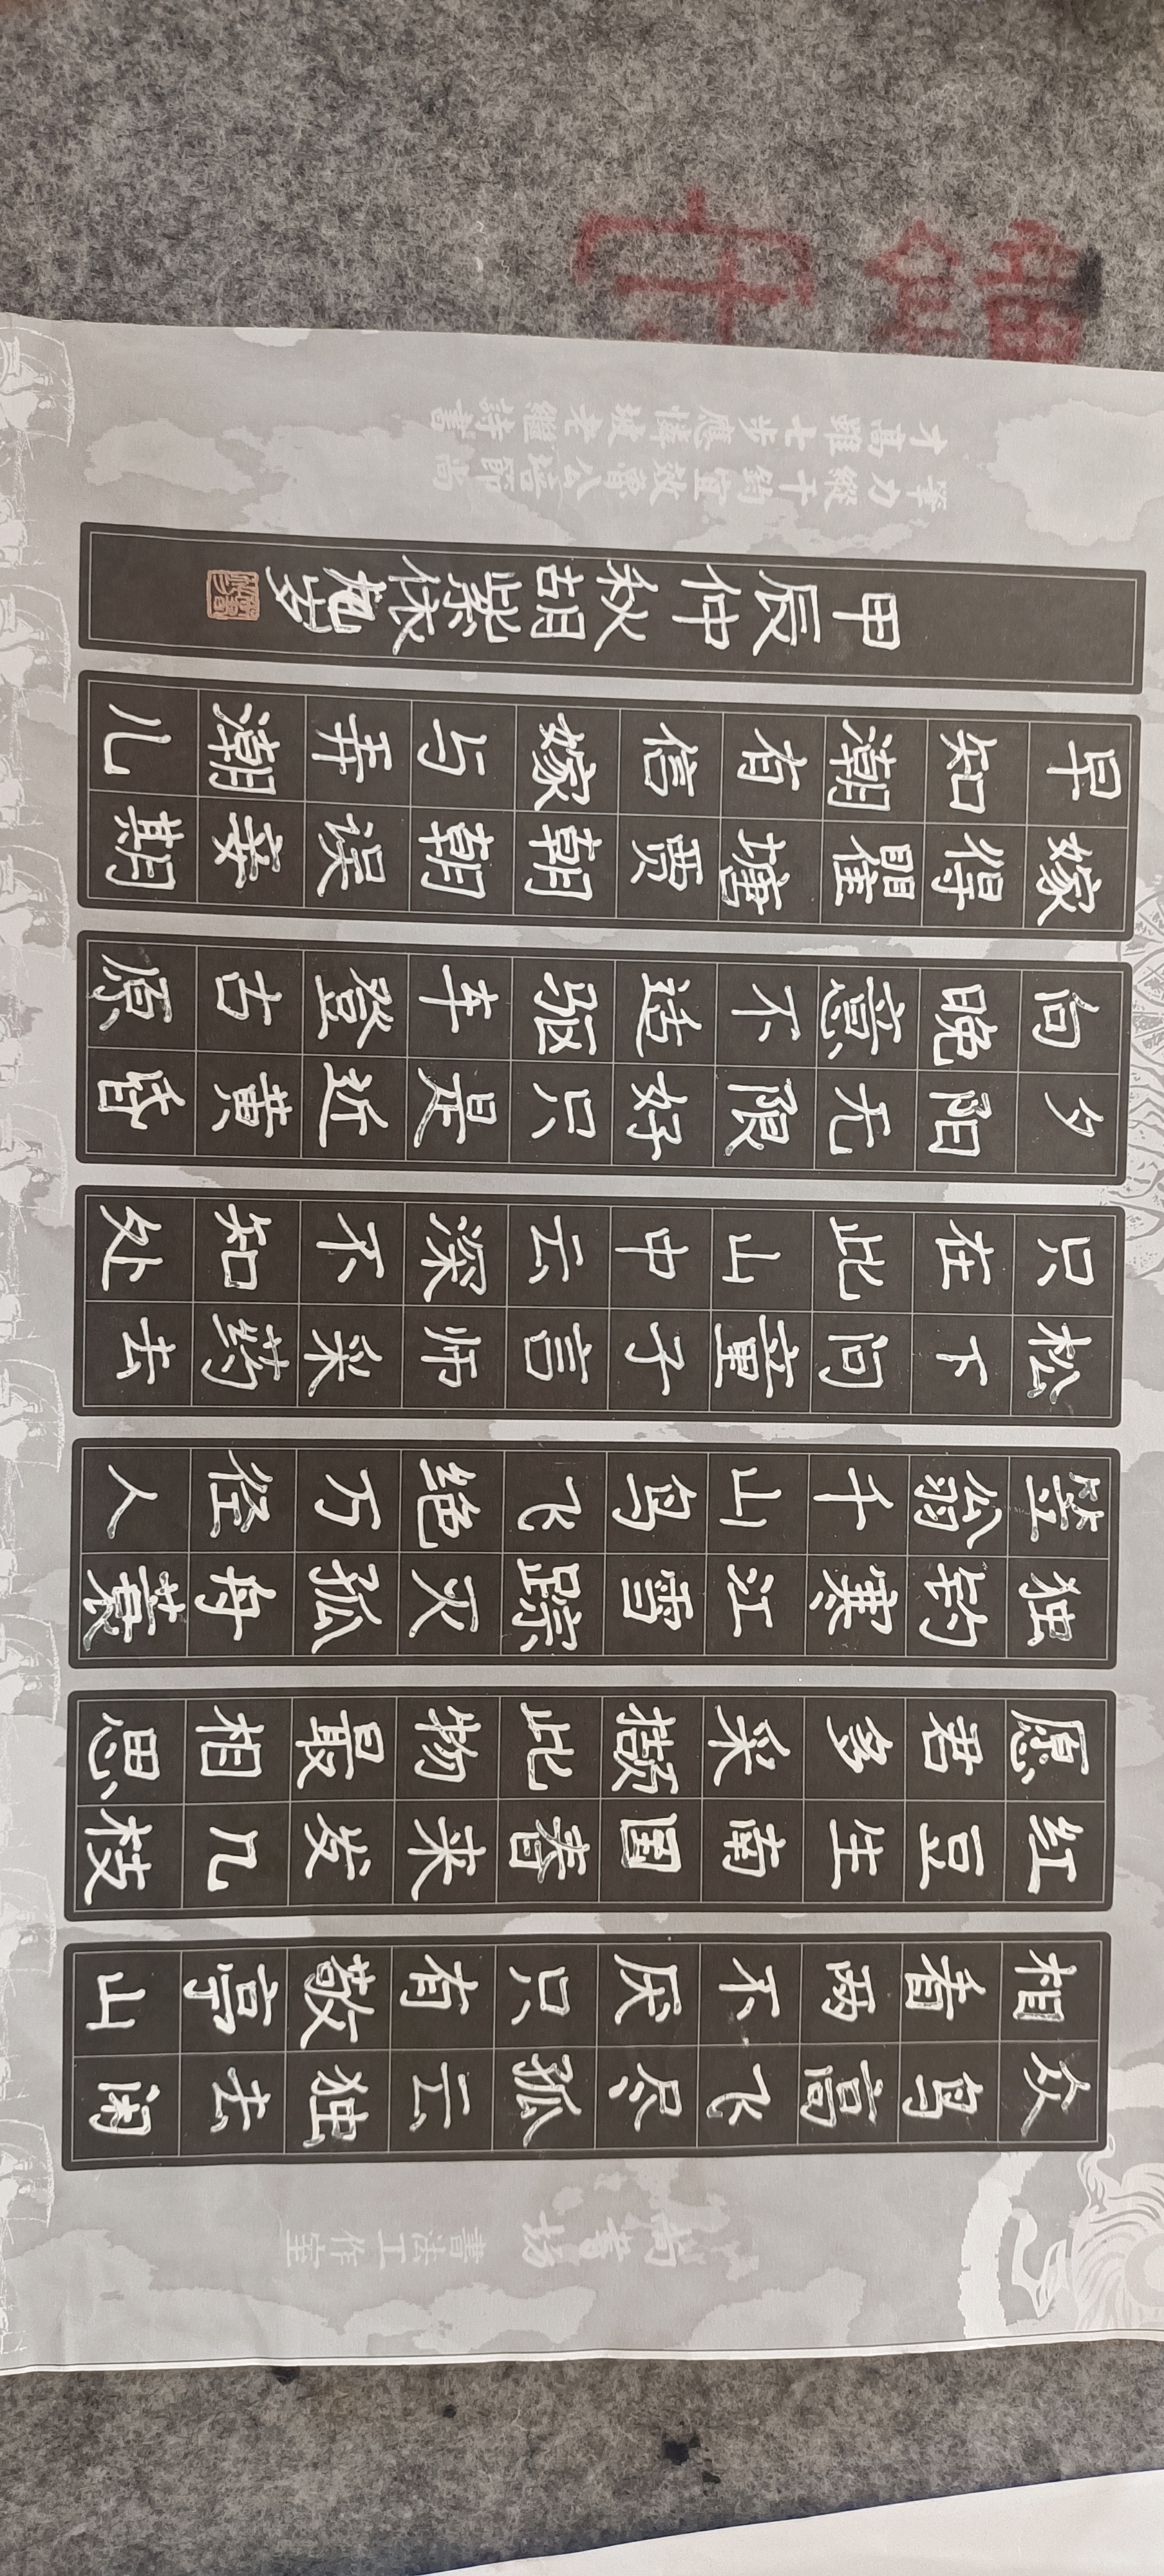 尚書坊
書法工作室
众鸟高飞尽孤云独去闲
相看两不厌只有敬亭山
红豆生南国春来发几枝
愿君多采撷此物最相思
独钓寒江雪踪灭孤舟蓑
笠翁千山鸟飞绝万径人
松下问童子言师采药去
只在此山中云深不知处
夕阳无限好只是近黄昏
向晚意不适驱车登古原
嫁得瞿塘贾朝朝误妾期
早知潮有信嫁与弄潮儿
甲辰仲秋胡紫依
筆力縱千鈞宜效魯公培節尚
才高雖七步應坡老繼詩書